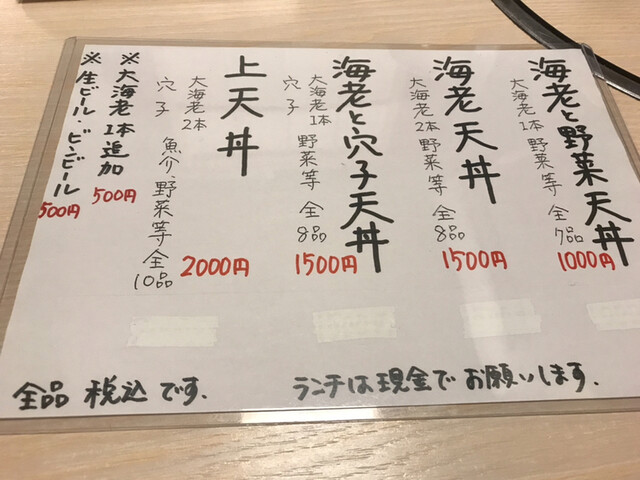 海老と野菜天丼
大海老1本 野菜等 全7品
1000円
海老天丼
大海老2本 野菜等 全8品
1500円
海老と穴子天丼
大海老1本
穴子 野菜等 全8品
1500円
上天丼
大海老2本
穴子 魚介、野菜等 全10品
2000円
※大海老1本追加
500円
※生ビール・ビンビール
500円
ランチは現金でお願いします.
全品 税込です.